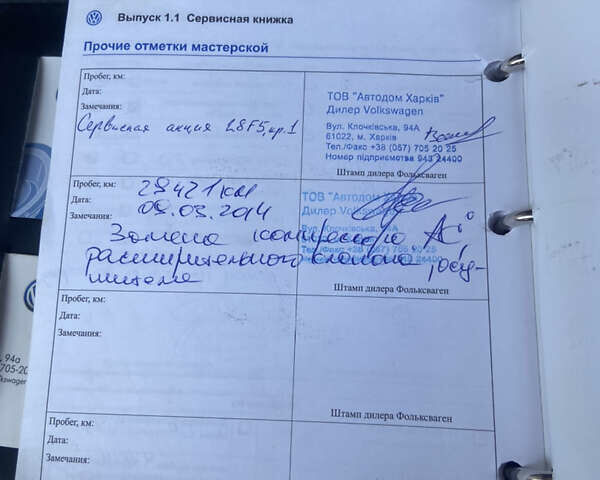 Выпуск 1.1 Сервисная книжка
Прочие отметки мастерской
Пробег, км:
Дата:
Замечания:
Сервисная акция L8F5, кр.1
ТОВ "Автодом Харків"
Дилер Volkswagen
Вул. Клочківська, 94А
61022, м. Харків
Тел./Факс +38 (057) 705 20 25
Номер підприємства 943 24400
Штамп дилера Фольксваген
Пробег, км: 29421 км
Дата: 09.03.2014
Замечания:
Замена компрессора АС,
расширительного клапана, осу-
шителя
ТОВ "Автодом
Дилер Volkswagen
Вул. Клочківська,
Тел./Факс +38 (057) 705 20 25
24400
Штамп дилера Фольксваген
Пробег, км:
Дата:
Замечания:
Штамп дилера Фольксваген
Пробег, км:
Дата:
Замечания:
, 94а
705-20
lkswagen